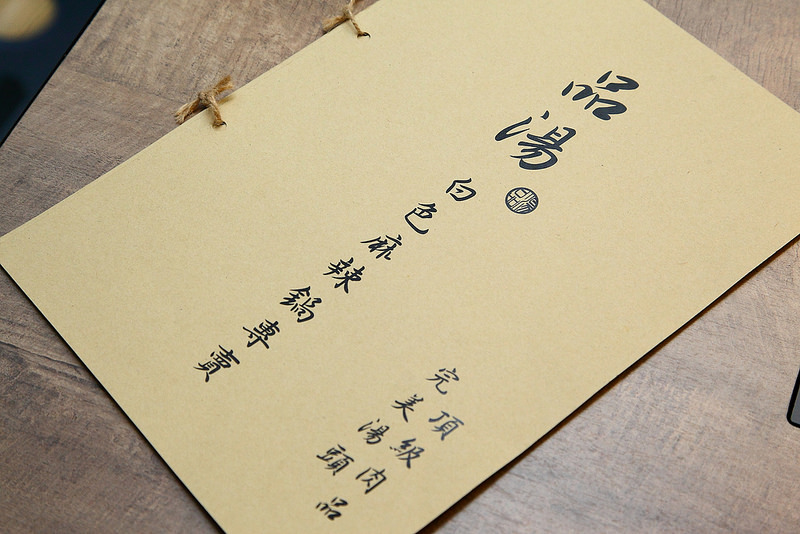 品湯
白色麻辣鍋專賣
頂級肉品
完美湯頭